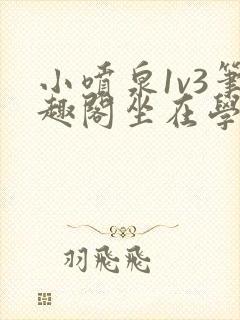 小噴泉1v3筆
趣閣坐在學
羽飛飛